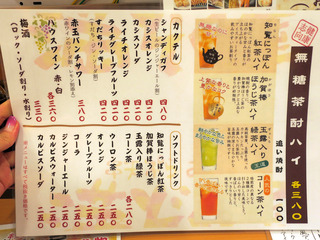 健康志向
無糖茶酎ハイ 各三八〇
追い焼酎 一〇〇
知覧にっぽん紅茶ハイ
加賀棒ほうじ茶ハイ
玉露入り緑茶ハイ
コーン茶ハイ
カクテル
シャンディガフ
カシスオレンジ
カシスソーダ
ライチオレンジ
ライチグレープフルーツ
すだちリッキー
赤玉パンチサワー
ハウスワイン 赤・白
梅酒
(ロック・ソーダ割り・水割り)
ソフトドリンク
知覧にっぽん紅茶
加賀棒ほうじ茶
玉露入り緑茶
コーン茶 各二八〇
ウーロン茶 二五〇
オレンジ 二五〇
グレープフルーツ 二五〇
コーラ 二五〇
ジンジャーエール 二五〇
カルピスウォーター 二五〇
カルピスソーダ 二五〇